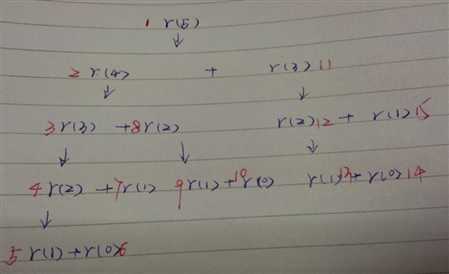 1 r(5)
2 r(4) + r(3) 11
3 r(3) + 8 r(2) r(2) 12 + r(1) 15
4 r(2) + 7 r(1) 9 r(1) + 10 r(0) r(1) 13 + r(0) 14
5 r(1) + r(0) 6